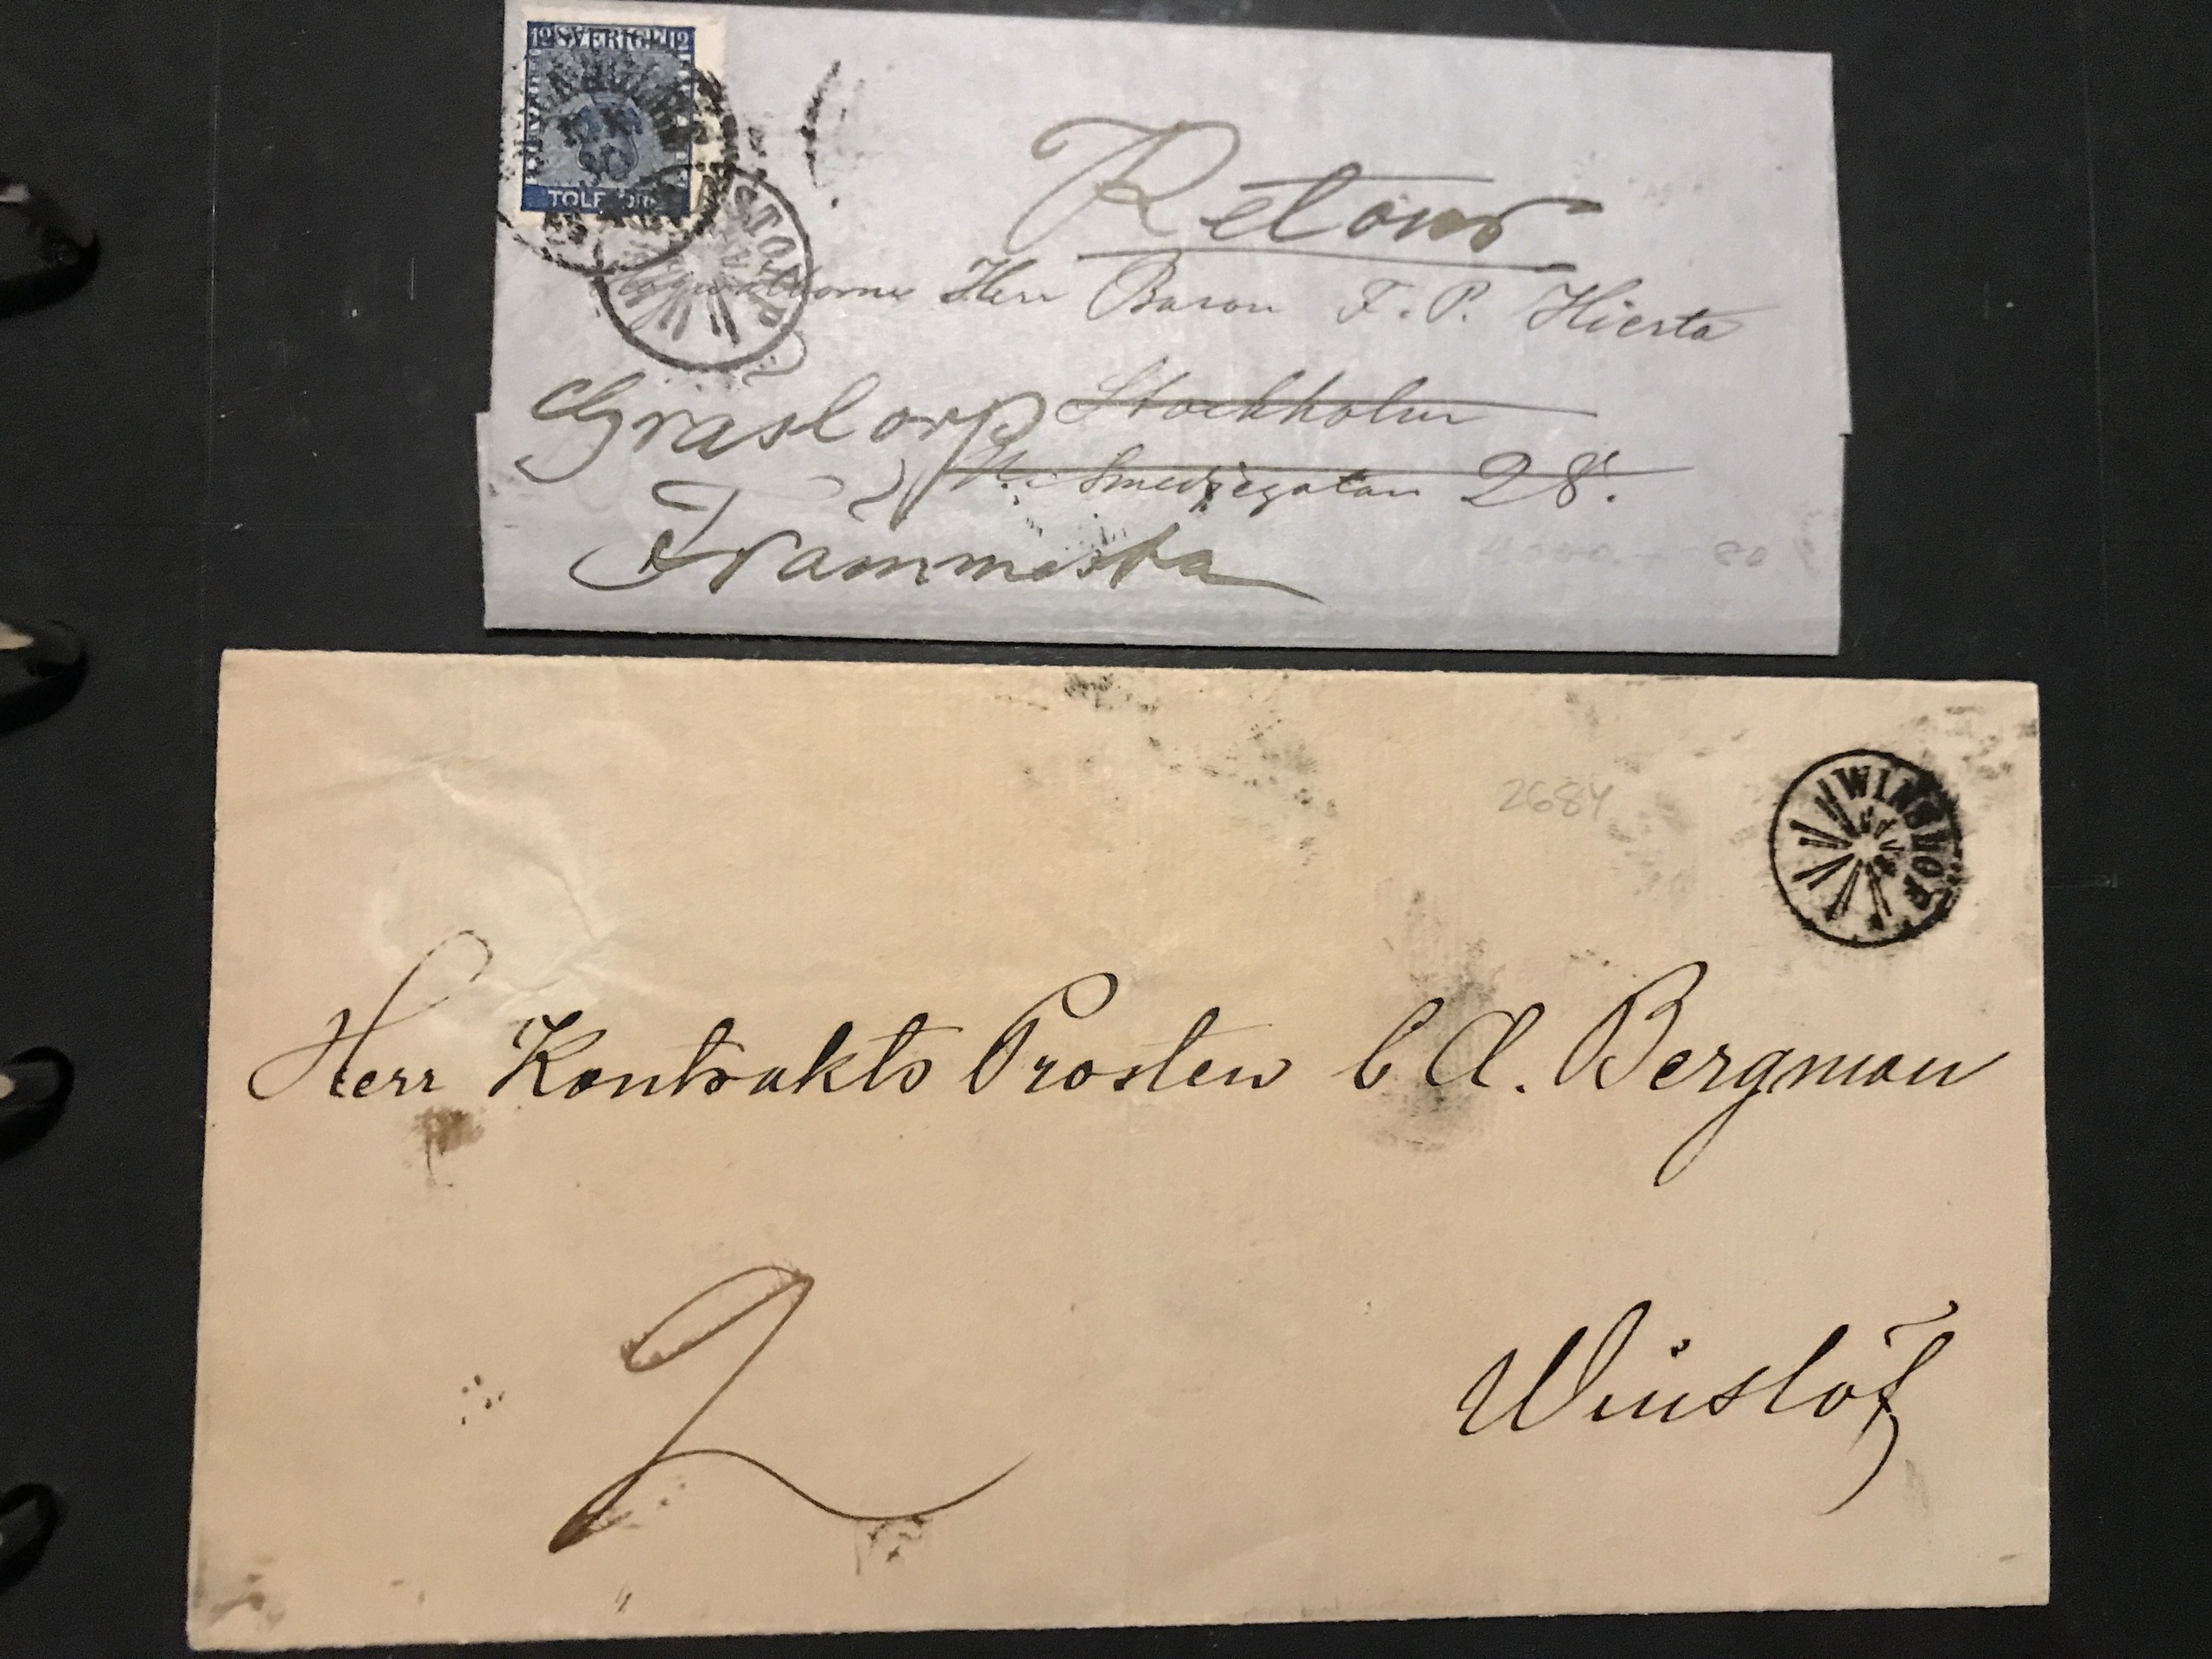 12 SVERIGE 12
TOLF ÖRE
Retour
Herr Baron F. P. Hierta
Grastorp Stockholm
N. Smedjegatan 28.
Främmesta
2684
WINSLÖF
Herr Kontrakts Prosten C A. Bergman
2
Winslöf